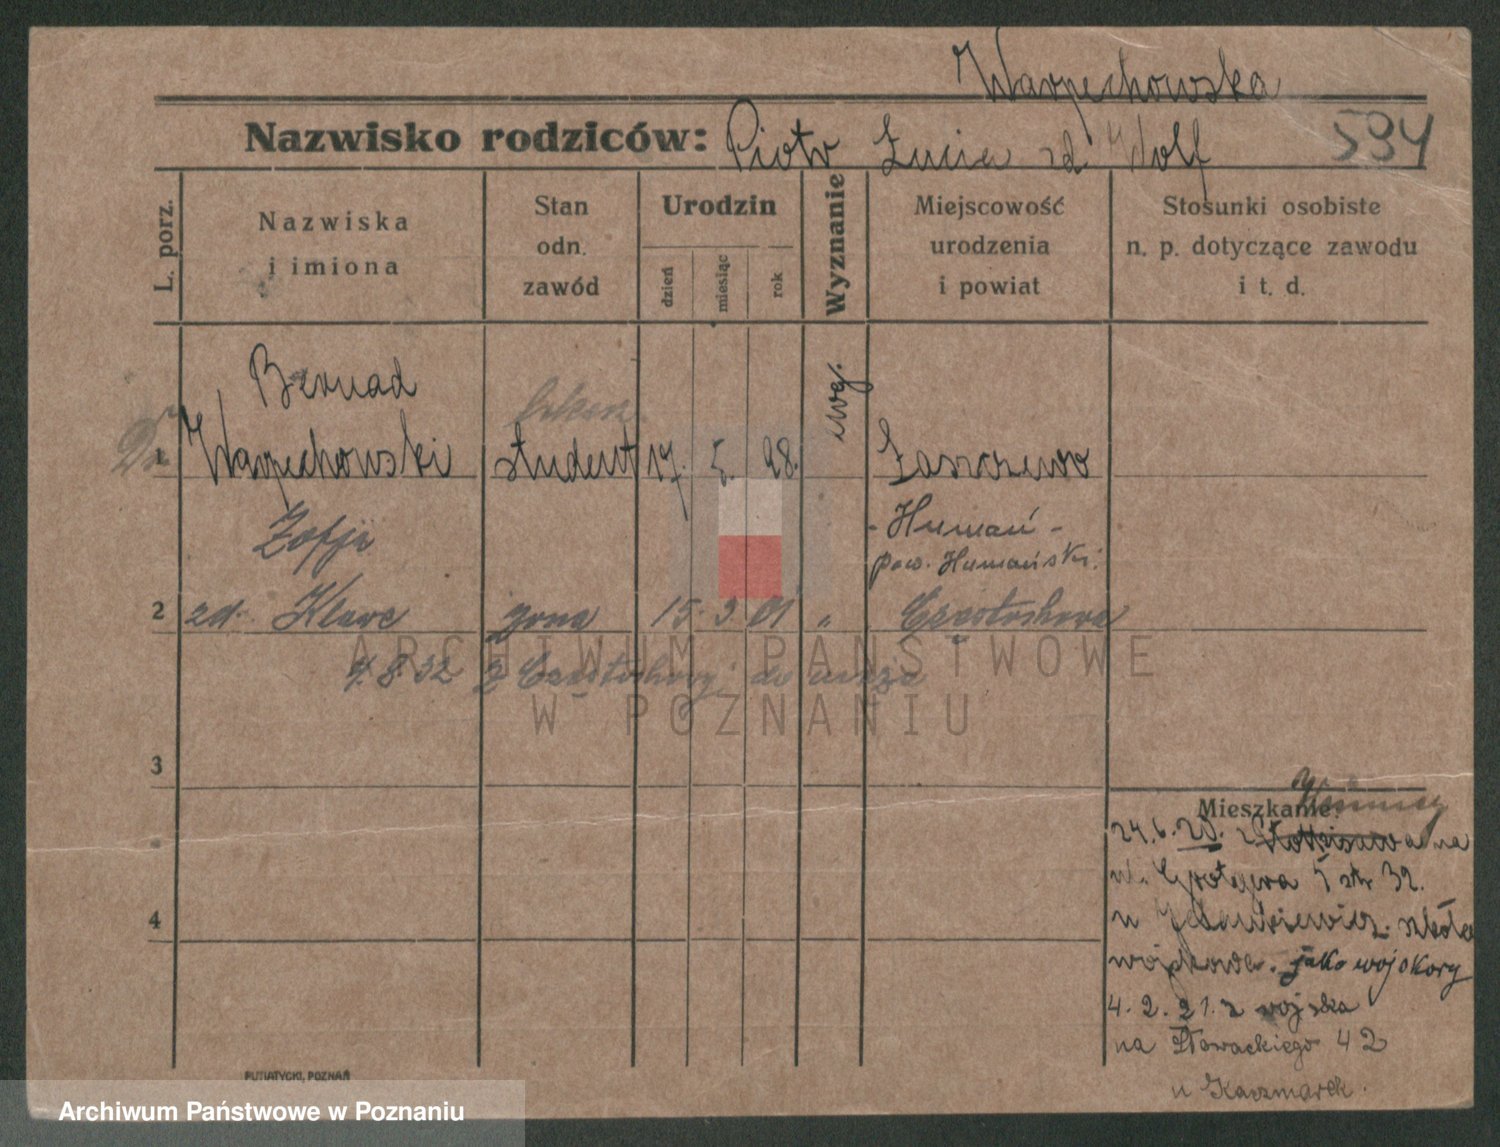 Warpechowska
Nazwisko rodziców: Piotr Łucia zd Wolf 594
L. porz.
Nazwiska
i imiona
Stan
odn.
zawód
Urodzin
dzień
miesiąc
rok
Wyznanie
Miejscowość
urodzenia
i powiat
Stosunki osobiste
n. p. dotyczące zawodu
i t. d.
Bernad
lekarz
ewg.
Dr 1 Warpechowski student 17. 5. 98. Łaszczewo
Zofja
- Humań -
pow. Humański.
2 zd. Klawe żona 15 3 01 " Częstochowa
4.8.32 z Częstochowy do męża
3
4
Mieszkanie:
24.6.20. z na
ul. Grotgera 5 str 32.
u szkoła
wojskowa. jako wojskowy
4.2.21. z wojska
na Słowackiego 42
u Kaczmarek.
PUTIATYCKI, POZNAŃ
ARCHIWUM PAŃSTWOWE
W POZNANIU
Archiwum Państwowe w Poznaniu